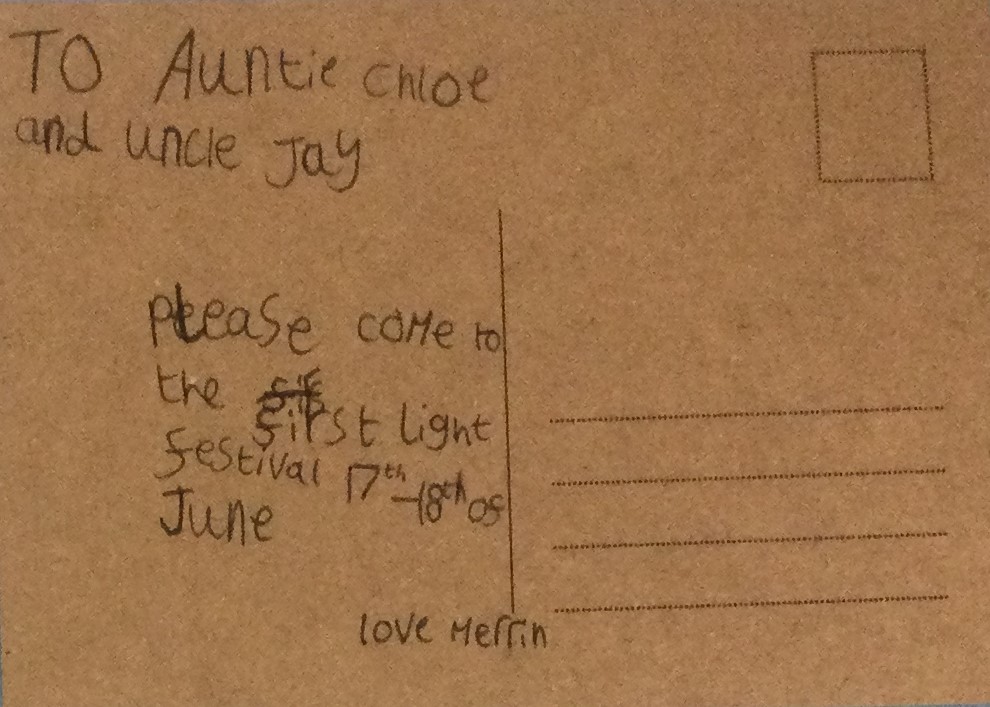 TO Auntie Chloe
and uncle Jay
please come to
the
first light
festival 17th-18th of
June
love Merrin